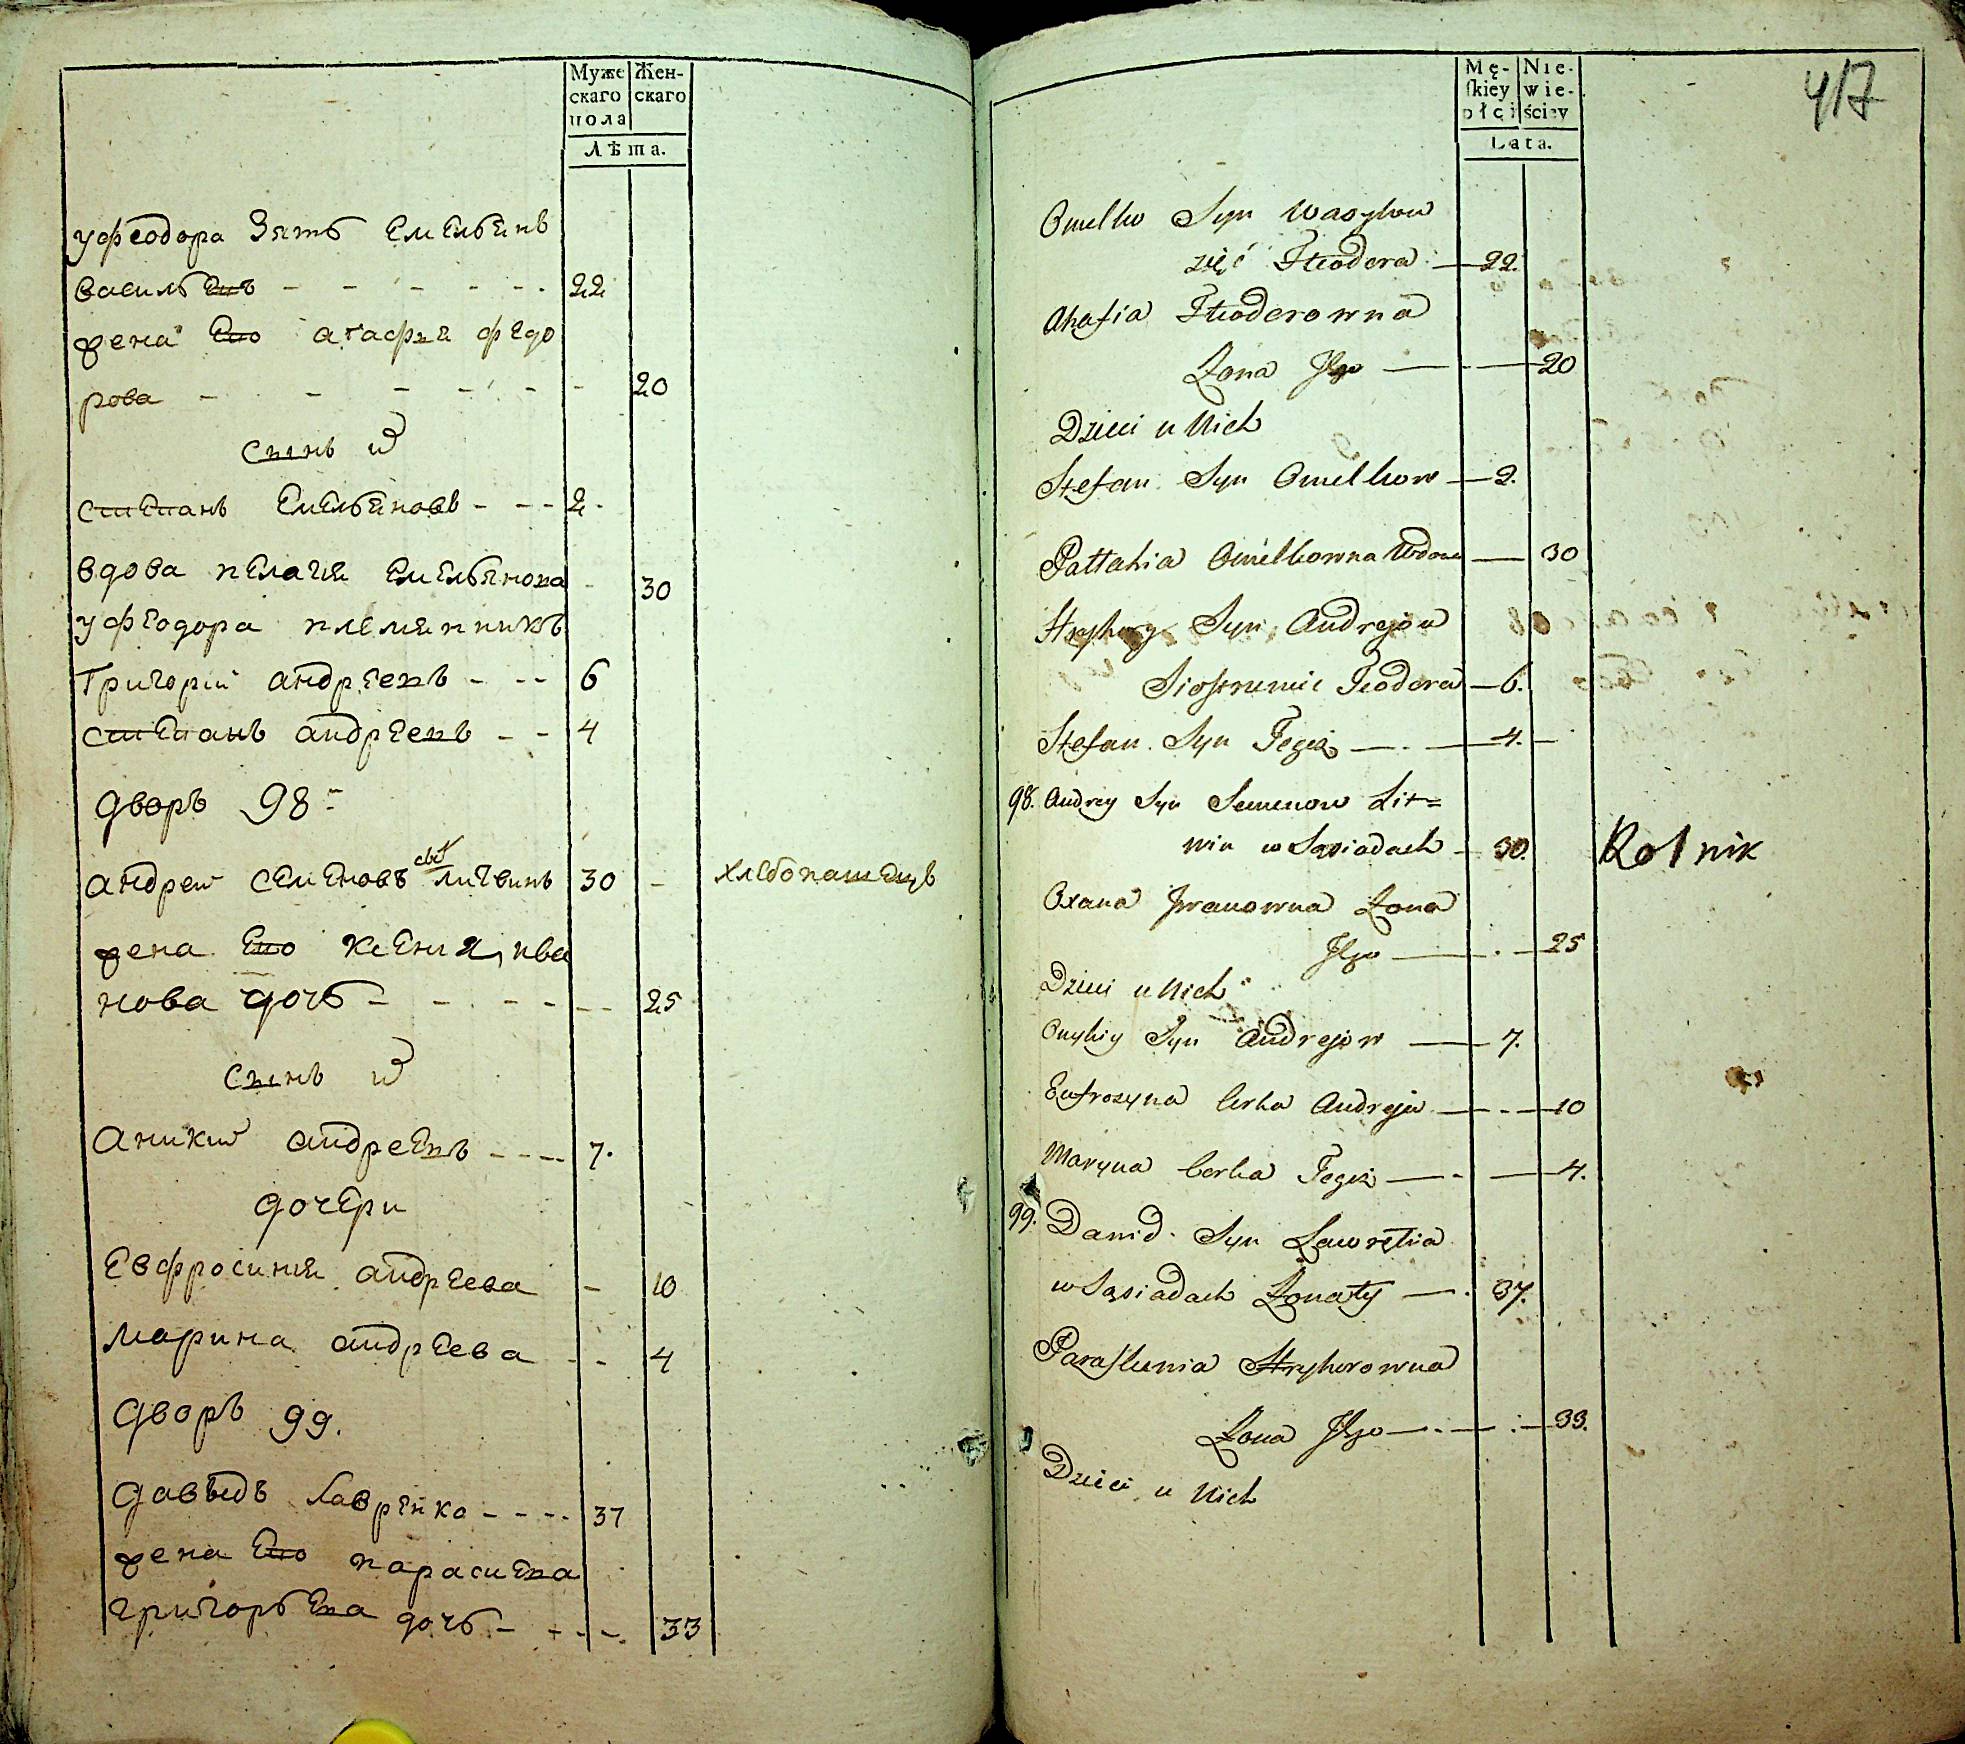 Муже
скаго
пола
Жен-
скаго
Лѣта.
у феодора Зять Емельѣнъ
васильевъ - - - - - - 22
жена Ево агафия федо
рова - - - - - - 20
сынъ и
степанъ Емельѣновъ - - - 2.
вдова пелагия Емельянова - 30
у феодора племянникъ
Григорий андреевъ - - - 6
степанъ андреевъ - - 4
дворъ 98
андрей семеновъ сынъ литвинъ 30 - хлебопашецъ
жена Ево ксения ива
нова дочь - - - - - - 25
сынъ и
аникий андреевъ - - - - 7.
дочери
Евфросиния андреева - 10
марина андреева - - 4
дворъ 99.
давыдъ лавренко - - - - 37
жена Ево парасиева
григорьева дочь - - - - 33
Mę-
ſkiey
płci
Nie-
wie-
ściey
Lata.
417
Omelko Syn Wasylow
zięć Fteodora — 22.
Ahafia Fteodorowna
Żona Jego — - — 20
Dzieci u Nich
Stefan Syn Omelkow — 2.
Pallahia Omelkowna Wdowa — 30
Hryhory Syn Andrejow
Siostrzeniec Teodora — 6.
Stefan Syn Tegoż — . — 4. —
98. Andrey Syn Semenow Lit=
win w Sąsiadach - 30. Rolnik
Oxana Iwanowna Żona
Jego — . — 25
Dzieci u Nich
Onykiy Syn Andrejow — 7.
Eufrozyna Corka Andreja — . — 10
Maryna Corka Tegoż — - — 4.
99. Dawid Syn Ławrętia
w Sąsiadach Żonaty — . 37.
Paraſkewia Hryhorowna
Żona Jego — . — . — 33.
Dzieci u Nich